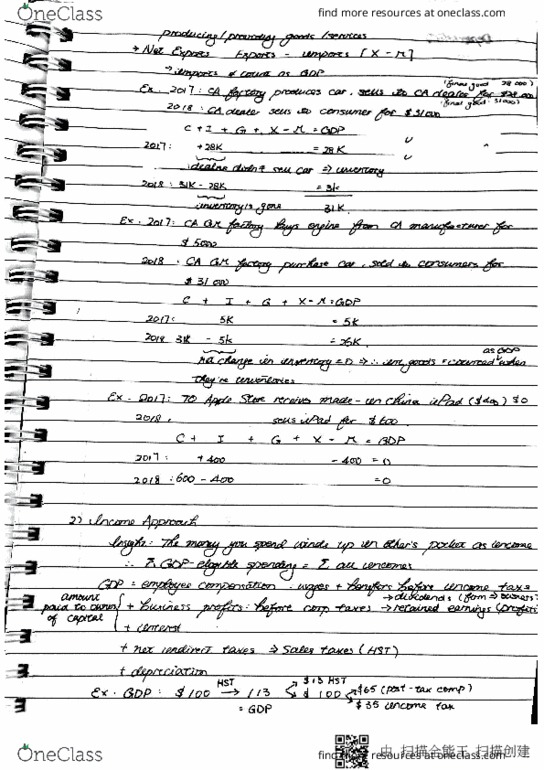 OneClass
find more resources at oneclass.com
producing/providing goods/services
→ Net Exports Exports - imports [X-M]
→ imports ≠ count as GDP
Ex. 2017: CA factory produces car, sells to CA dealer for $28 000
(final good 28 000)
2018: CA dealer sells to consumer for $31000
(final good: 31000)
C + I + G + X - M = GDP
2017: +28K = 28K
dealer didn't sell car ⇒ inventory
2018: 31K - 28K = 3K
inventory is gone 31K
Ex. 2017: CA GM factory buys engine from CA manufacturer for
$5000
2018. CA GM factory purchase car, sold to consumers for
$31000
C + I + G + X - M = GDP
2017: 5K = 5K
2018 31K - 5K = 26K
Net change in inventory = 0 ⇒ ∴ int goods counted as GDP when
they're inventories
Ex. 2017: TO Apple Store receives made-in China iPad ($400) $0
2018. sells iPad for $600
C + I + G + X - M = GDP
2017: +400 -400 = 0
2018: 600 - 400 = 0
2) Income Approach
Insight: The money you spend winds up in other's pocket as income
∴ Σ GDP-eligible spending = Σ all incomes
GDP = employee compensation: wages + benefits before income taxes
→ dividends (firm ⇒ owners)
amount paid to owner of capital
+ business profits: before corp taxes → retained earnings (profits
+ interest
+ net indirect taxes ⇒ Sales taxes (HST)
+ depreciation
Ex. GDP: $100 HST → 113
$13 HST
$100
$65 (post-tax comp)
$35 income tax
= GDP
OneClass
find more resources at oneclass.com
扫描全能王 扫描创建